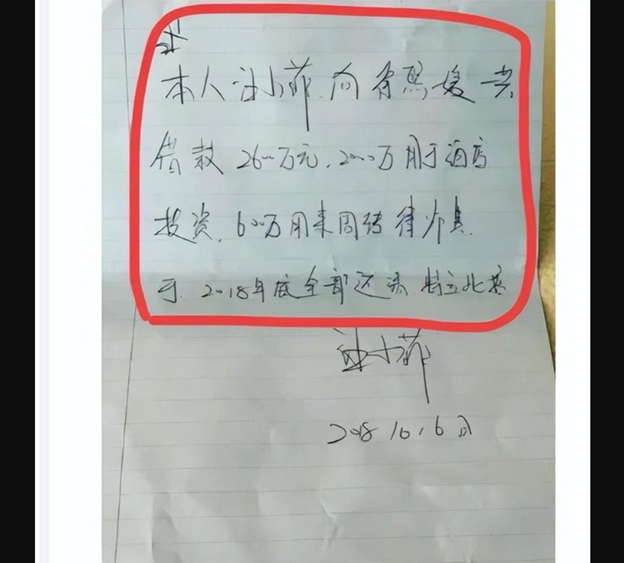 本人汪小菲.向徐熙媛共
借款2600万元.2000万用于酒店
投资,600万用来周转律师费.
于2018年底全部还清 特立此
汪小菲
2018 10.6日